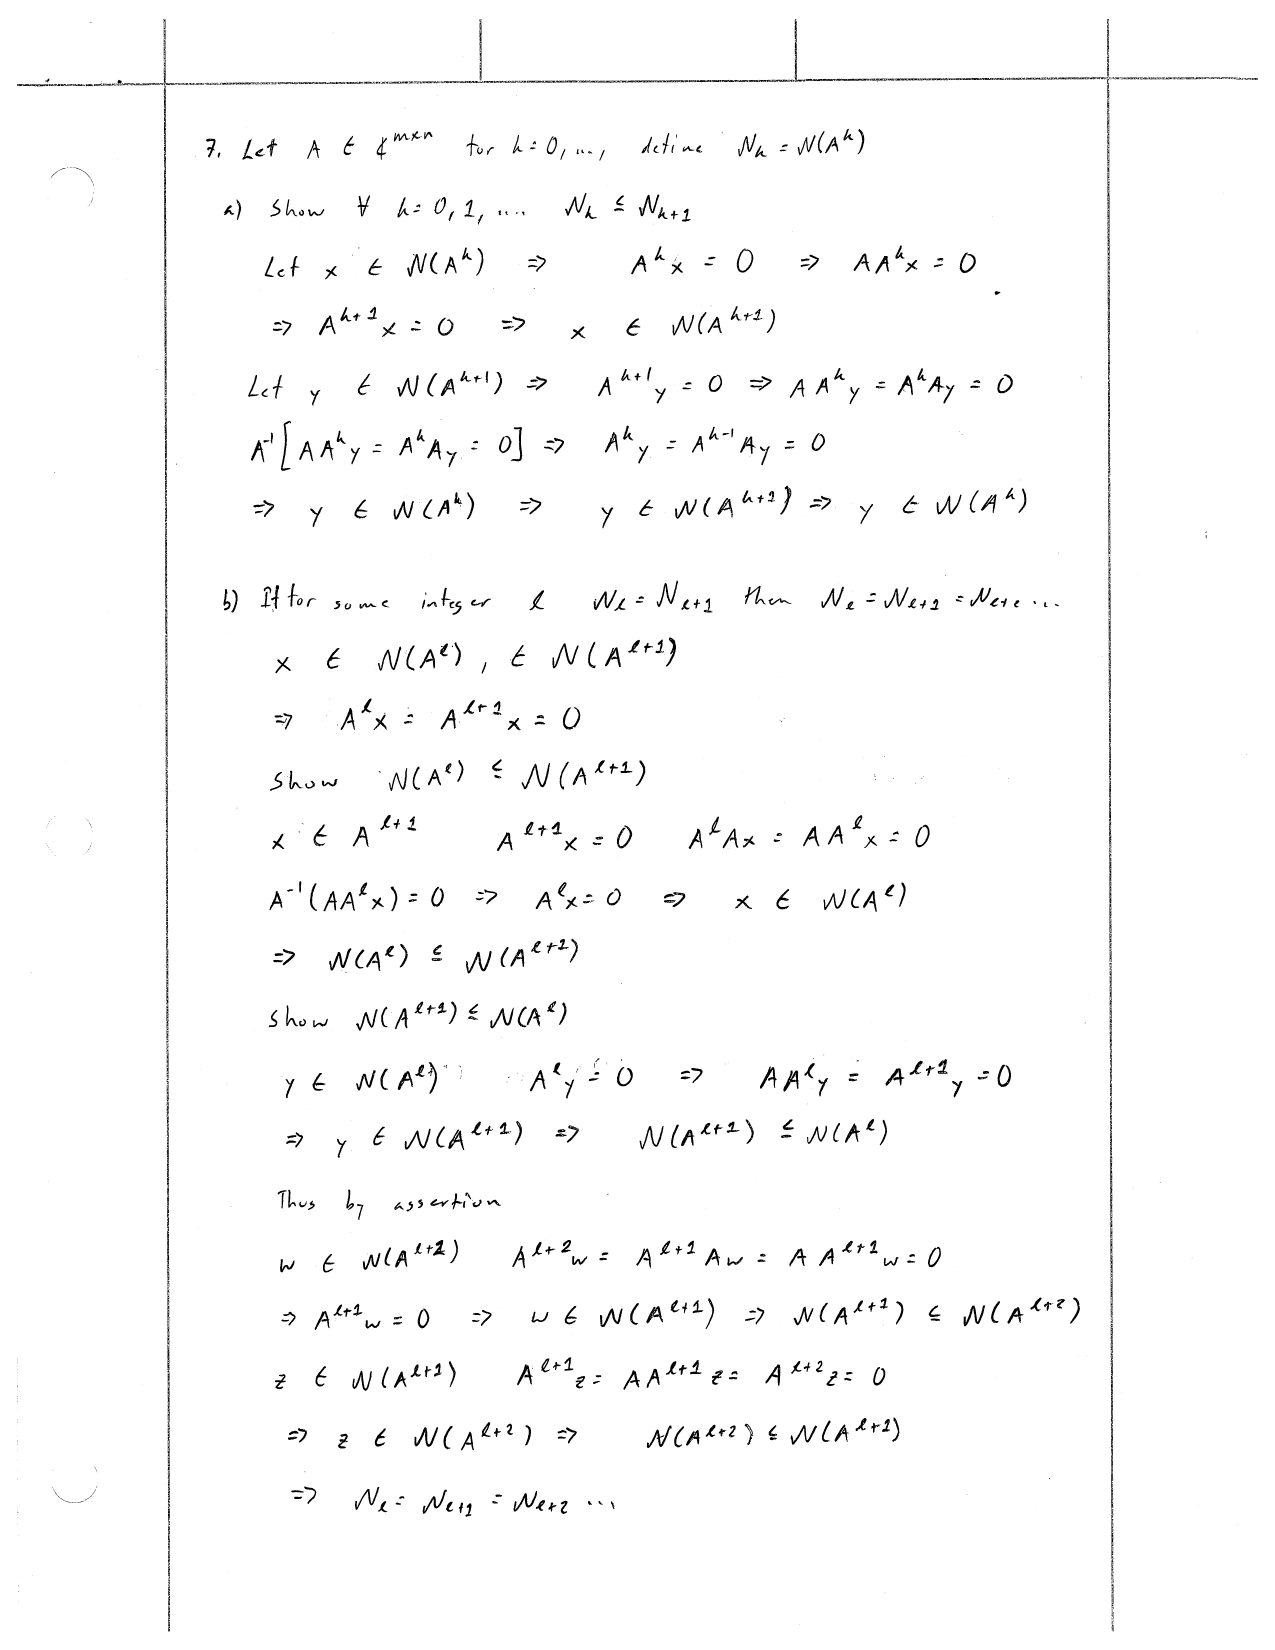 7. Let A ∈ ₵^{m×n} for k=0,..., define N_k = N(A^k)
a) Show ∀ k=0,1,.... N_k ⊆ N_{k+1}
Let x ∈ N(A^k) ⇒ A^k x = 0 ⇒ AA^k x = 0
⇒ A^{k+1} x = 0 ⇒ x ∈ N(A^{k+1})
Let y ∈ N(A^{k+1}) ⇒ A^{k+1} y = 0 ⇒ AA^k y = A^k Ay = 0
A^{-1}[AA^k y = A^k Ay = 0] ⇒ A^k y = A^{k-1} Ay = 0
⇒ y ∈ N(A^k) ⇒ y ∈ N(A^{k+1}) ⇒ y ∈ N(A^k)
b) If for some integer ℓ N_ℓ = N_{ℓ+1} then N_ℓ = N_{ℓ+1} = N_{ℓ+2} ...
x ∈ N(A^ℓ), ∈ N(A^{ℓ+1})
⇒ A^ℓ x = A^{ℓ+1} x = 0
Show N(A^ℓ) ⊆ N(A^{ℓ+1})
x ∈ A^{ℓ+1} A^{ℓ+1} x = 0 A^ℓ Ax = AA^ℓ x = 0
A^{-1}(AA^ℓ x) = 0 ⇒ A^ℓ x = 0 ⇒ x ∈ N(A^ℓ)
⇒ N(A^ℓ) ⊆ N(A^{ℓ+1})
Show N(A^{ℓ+1}) ⊆ N(A^ℓ)
y ∈ N(A^ℓ) A^ℓ y = 0 ⇒ AA^ℓ y = A^{ℓ+1} y = 0
⇒ y ∈ N(A^{ℓ+1}) ⇒ N(A^{ℓ+1}) ⊆ N(A^ℓ)
Thus by assertion
w ∈ N(A^{ℓ+2}) A^{ℓ+2} w = A^{ℓ+1} Aw = A A^{ℓ+1} w = 0
⇒ A^{ℓ+1} w = 0 ⇒ w ∈ N(A^{ℓ+1}) ⇒ N(A^{ℓ+1}) ⊆ N(A^{ℓ+2})
z ∈ N(A^{ℓ+1}) A^{ℓ+1} z = AA^{ℓ+1} z = A^{ℓ+2} z = 0
⇒ z ∈ N(A^{ℓ+2}) ⇒ N(A^{ℓ+2}) ⊆ N(A^{ℓ+1})
⇒ N_ℓ = N_{ℓ+1} = N_{ℓ+2} ...